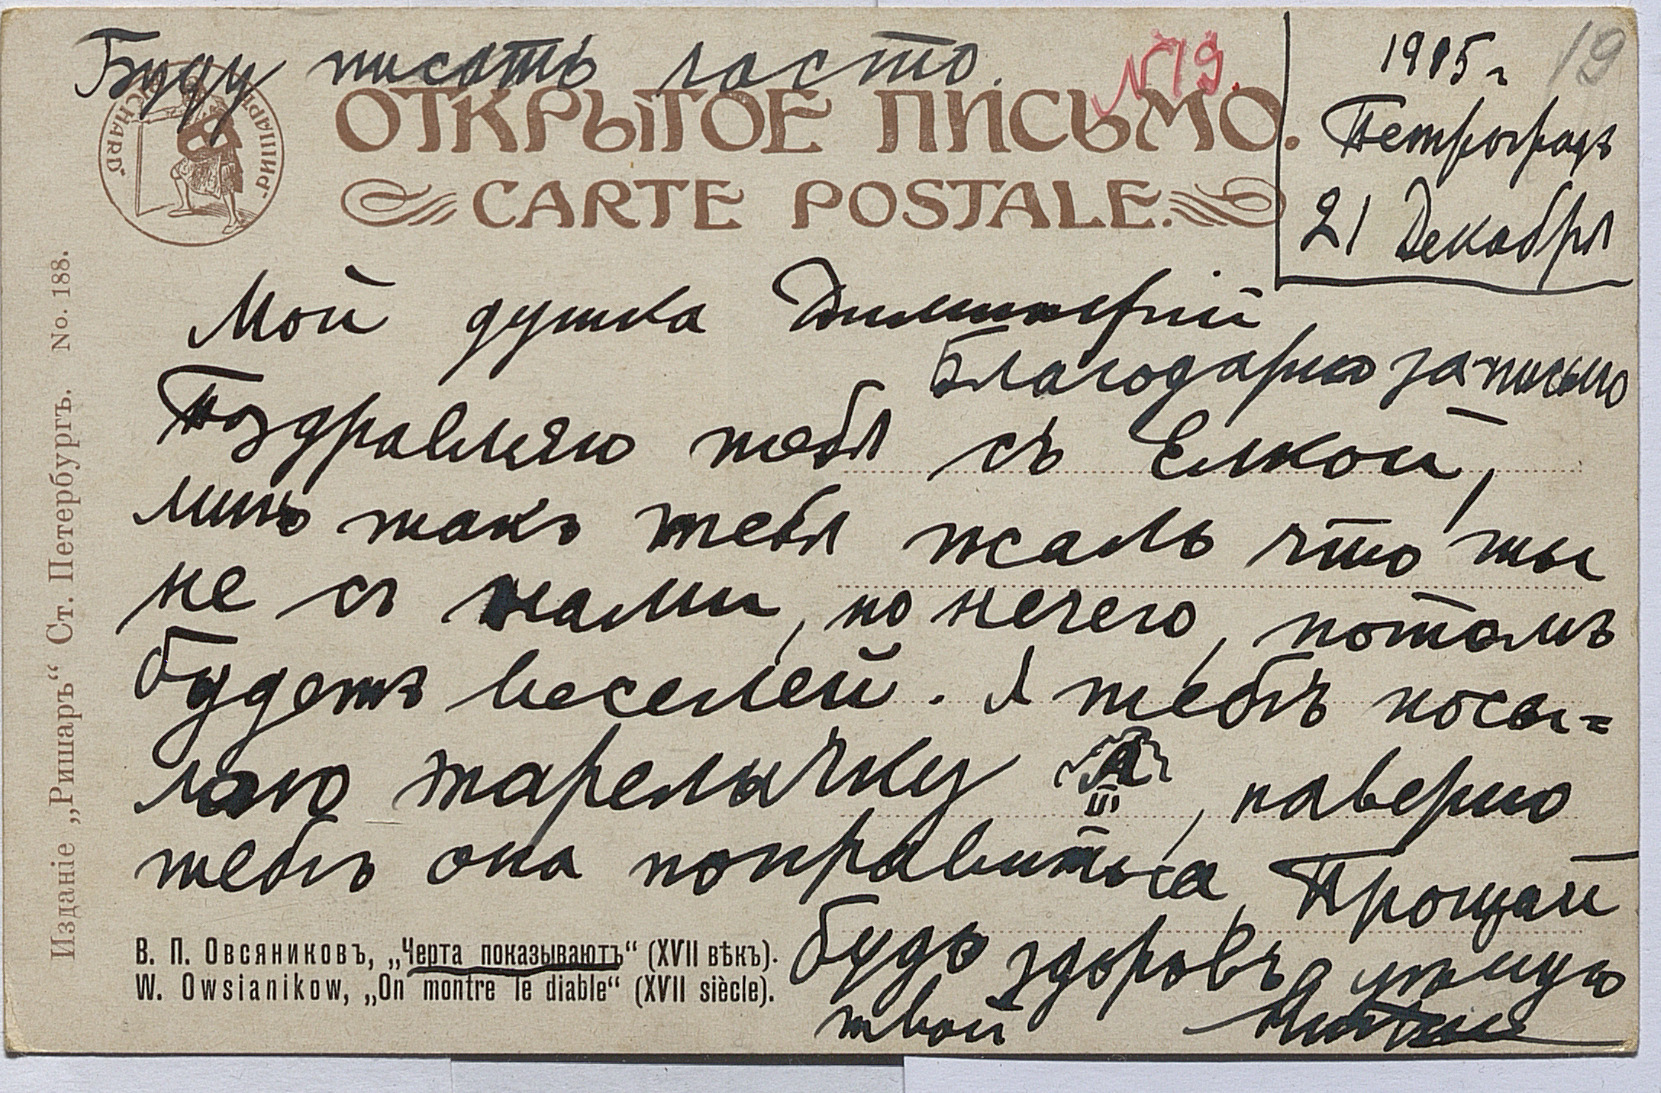 Буду писать часто.
№ 19.
19
ОТКРЫТОЕ ПИСЬМО.
CARTE POSTALE.
РИШАРЪ
RICHARD
1915 г
Петроградъ
21 Декабря
Мой душка Димитрій,
Благодарю за письмо
Поздравляю тебя съ Елкой,
мнѣ такъ тебя жаль что ты
не съ нами, но нечего, потомъ
будетъ веселей. Я тебѣ посы=
лаю тарелычку А III, наверно
тебѣ она понравиться, Прощай
будь здоровъ цѣлую
твой
Изданіе „Ришаръ“ Ст. Петербургъ. No. 188.
В. П. Овсяниковъ, „Черта показываютъ“ (XVII вѣкъ).
W. Owsianikow, „On montre le diable“ (XVII siècle).